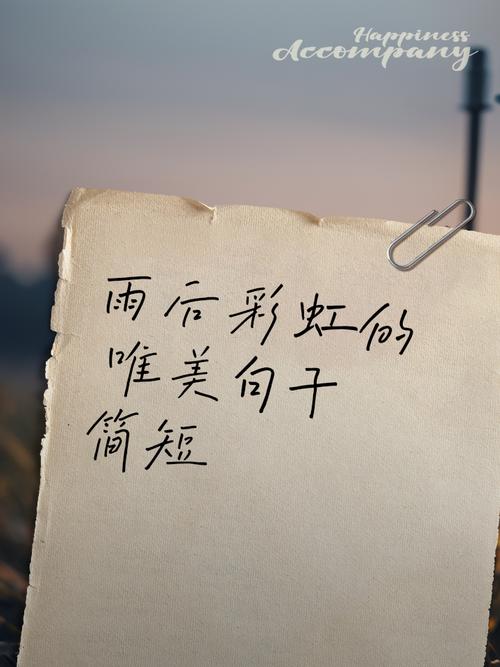 Happiness
Accompany
雨后彩虹的
唯美句子
简短